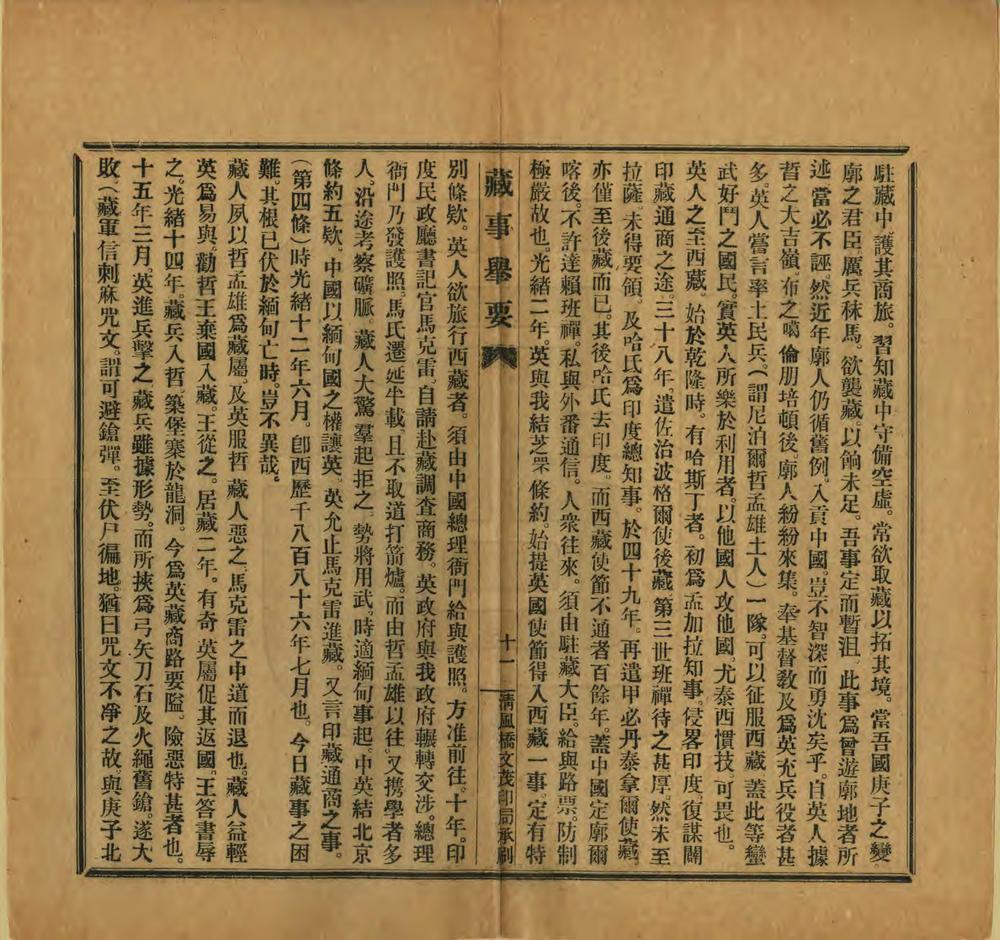 駐藏中。護其商旅。習知藏中守備空虛。常欲取藏以拓其境。當吾國庚子之變。
廓之君臣厲兵秣馬。欲襲藏。以餉未足。吾事定而暫沮。此事爲曾遊廓地者所
述。當必不誣。然近年廓人仍循舊例。入貢中國。豈不智深而勇沈矣乎。自英人據
哲之大吉嶺。布之噶倫朋培頓後。廓人紛紛來集。奉基督敎及爲英充兵役者甚
多。英人嘗言率土民兵。(謂尼泊爾哲孟雄土人)一隊。可以征服西藏。蓋此等蠻
武好鬥之國民。實英人所樂於利用者。以他國人攻他國。尤泰西慣技。可畏也。
英人之至西藏。始於乾隆時。有哈斯丁者。初爲孟加拉知事。侵畧印度。復謀闢
印藏通商之途。三十八年。遣佐治波格爾使後藏。第三世班禪待之甚厚。然未至
拉薩。未得要領。及哈氏爲印度總知事。於四十九年。再遣甲必丹泰拿爾使藏。
亦僅至後藏而已。其後哈氏去印度。而西藏使節不通者百餘年。蓋中國定廓爾
喀後。不許達賴班禪。私與外番通信。人衆往來。須由駐藏大臣。給與路票。防制
極嚴故也。光緒二年。英與我結芝罘條約。始提英國使節得入西藏一事。定有特
藏事舉要 十一 淸風橋文茂印局承刷
別條欵。英人欲旅行西藏者。須由中國總理衙門給與護照。方准前往。十年。印
度民政廳書記官馬克雷。自請赴藏調查商務。英政府與我政府輾轉交涉。總理
衙門乃發護照。馬氏遷延半載。且不取道打箭爐。而由哲孟雄以往。又携學者多
人。沿途考察礦脈。藏人大驚。羣起拒之。勢將用武。時適緬甸事起。中英結北京
條約五欵。中國以緬甸國之權讓英。英允止馬克雷進藏。又言印藏通商之事。
(第四條)時光緒十二年六月。卽西歷千八百八十六年七月也。今日藏事之困
難。其根已伏於緬甸亡時。豈不異哉。
藏人夙以哲孟雄爲藏屬。及英服哲。藏人惡之。馬克雷之中道而退也。藏人益輕
英爲易與。勸哲王棄國入藏。王從之。居藏二年。有奇。英屬促其返國。王答書辱
之。光緒十四年。藏兵入哲。築堡寨於龍洞。今爲英藏商路要隘。險惡特甚者也。
十五年三月。英進兵擊之。藏兵雖據形勢。而所挾爲弓矢刀石及火繩舊鎗。遂大
敗。(藏軍信刺麻咒文。謂可避鎗彈。至伏尸徧地。猶曰咒文不凈之故。與庚子北